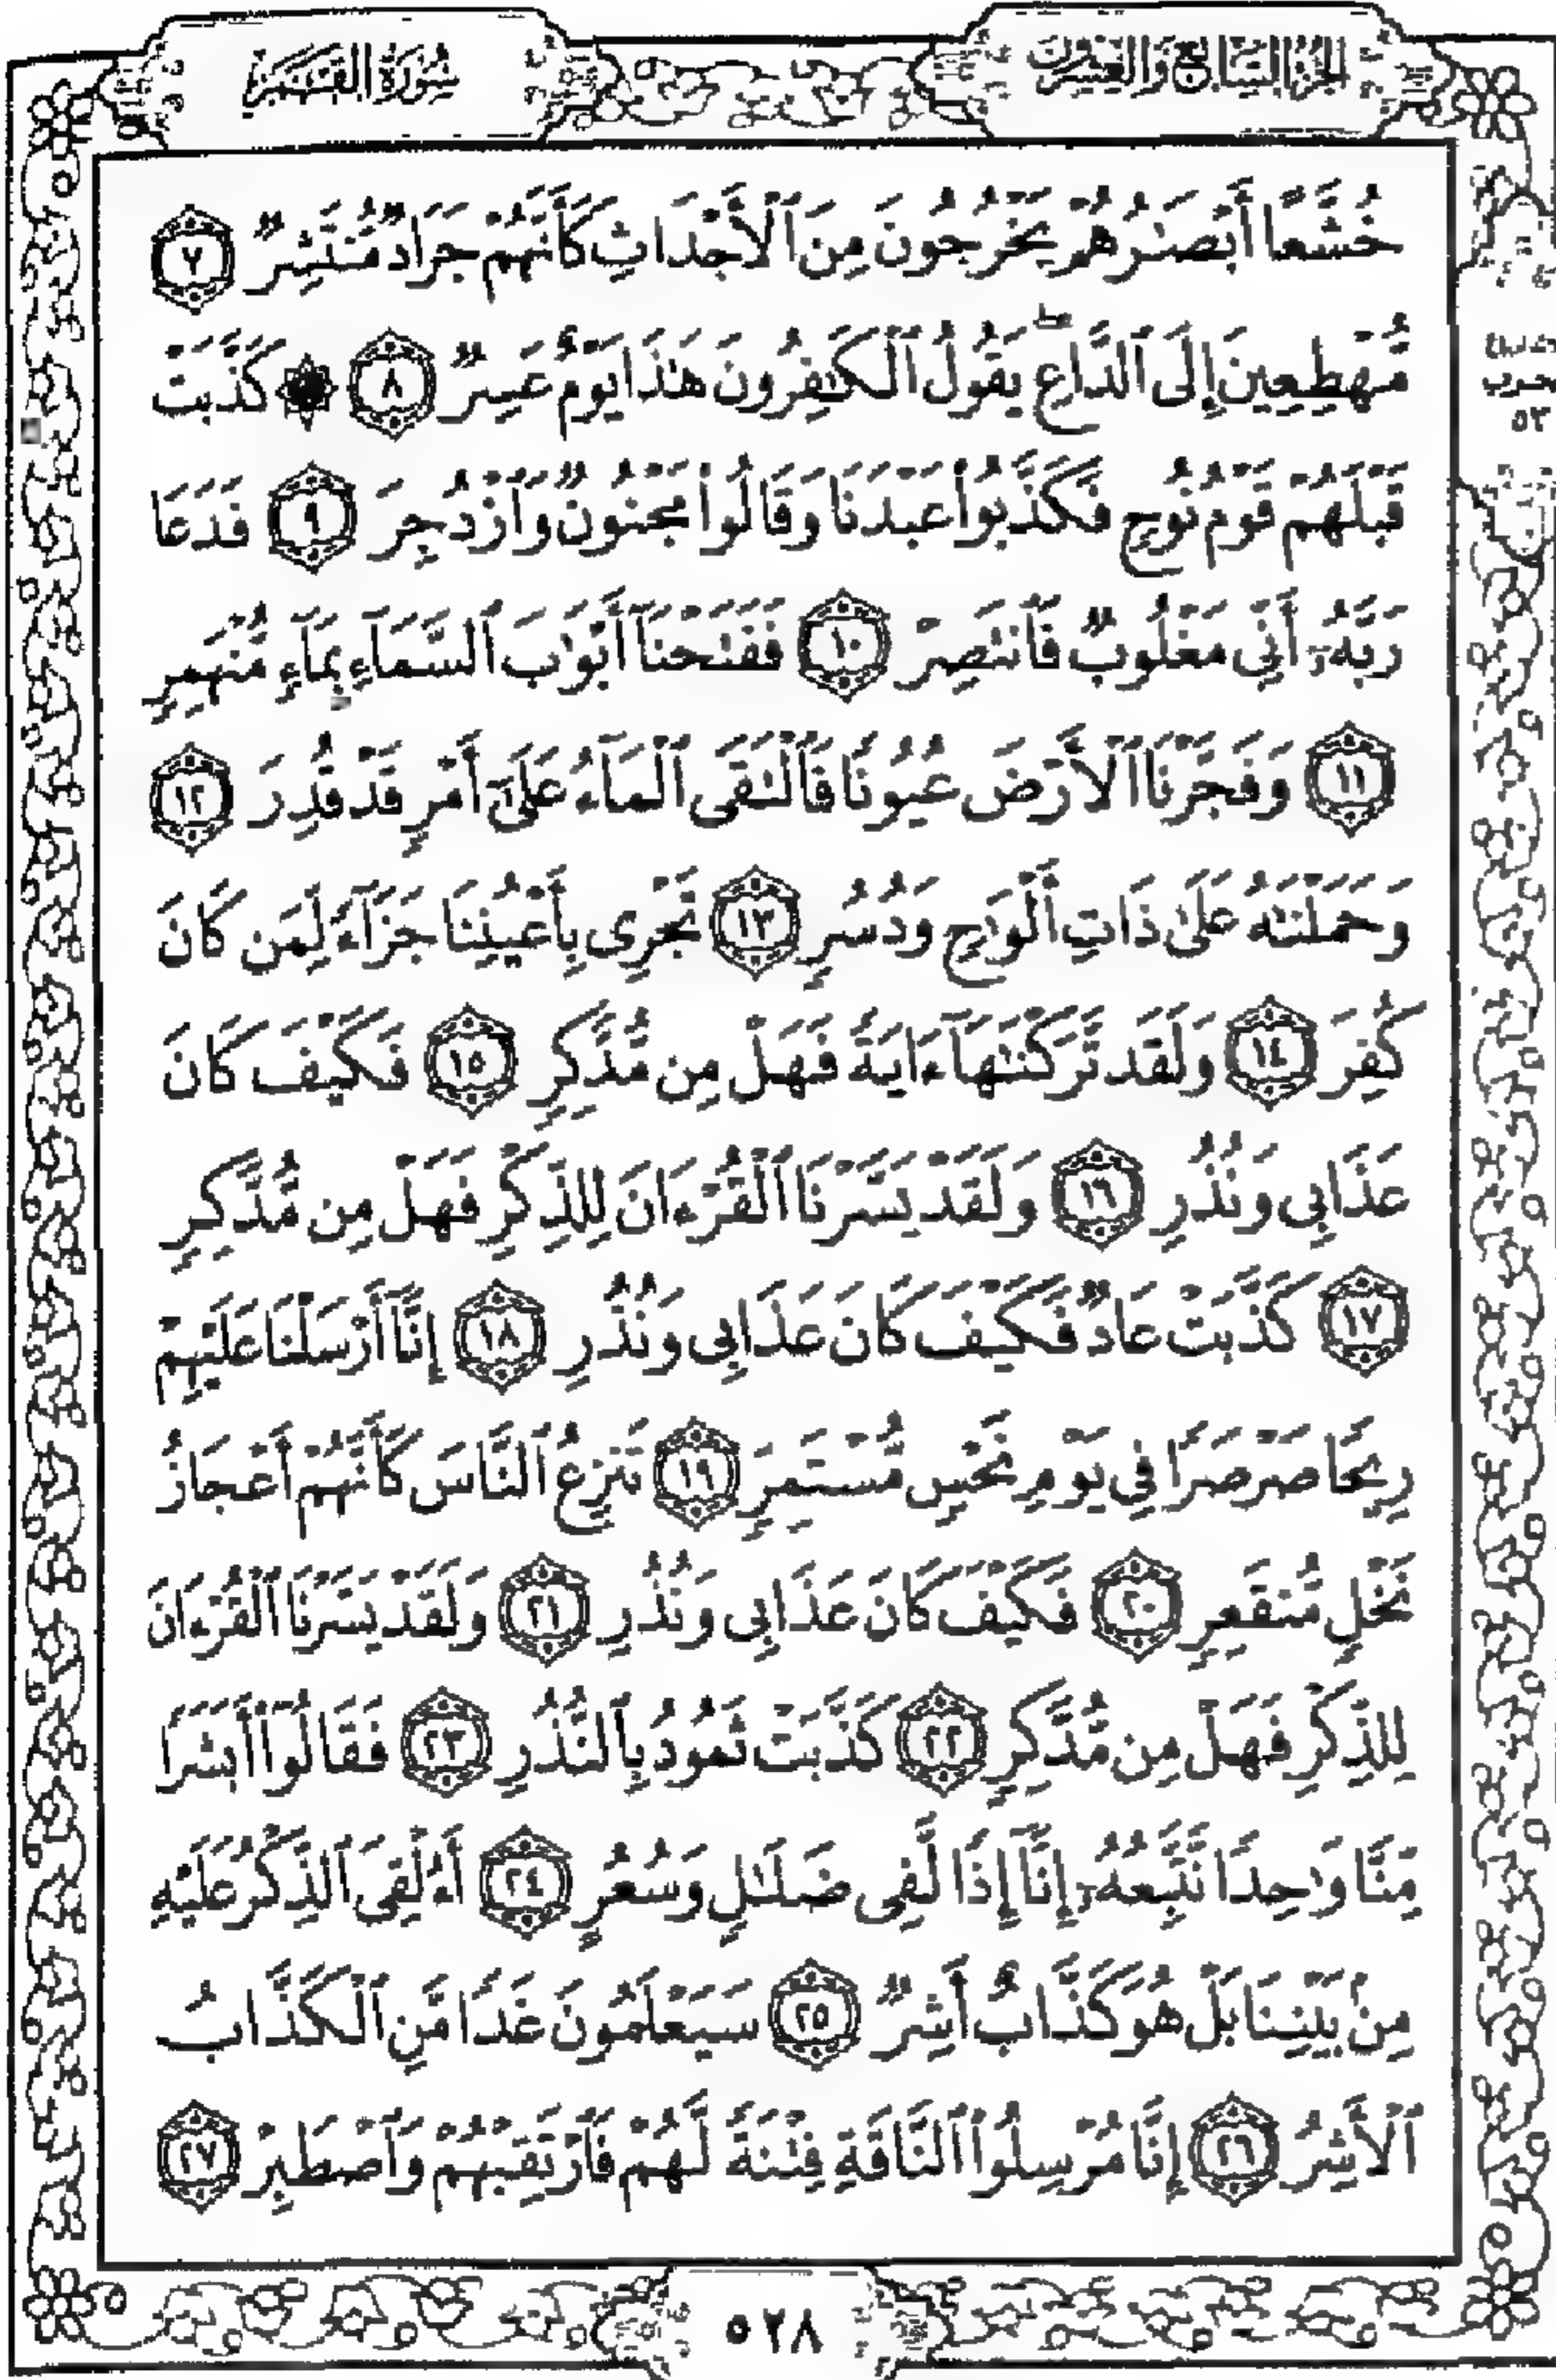 الجزء السابع والعشرون
سورة القمر
خُشَّعًا أَبْصَٰرُهُمْ يَخْرُجُونَ مِنَ ٱلْأَجْدَاثِ كَأَنَّهُمْ جَرَادٌ مُّنتَشِرٌ ٧
مُّهْطِعِينَ إِلَى ٱلدَّاعِ ۖ يَقُولُ ٱلْكَٰفِرُونَ هَٰذَا يَوْمٌ عَسِرٌ ٨ ۞ كَذَّبَتْ
قَبْلَهُمْ قَوْمُ نُوحٍ فَكَذَّبُوا۟ عَبْدَنَا وَقَالُوا۟ مَجْنُونٌ وَٱزْدُجِرَ ٩ فَدَعَا
رَبَّهُۥٓ أَنِّى مَغْلُوبٌ فَٱنتَصِرْ ١٠ فَفَتَحْنَآ أَبْوَٰبَ ٱلسَّمَآءِ بِمَآءٍ مُّنْهَمِرٍ
١١ وَفَجَّرْنَا ٱلْأَرْضَ عُيُونًا فَٱلْتَقَى ٱلْمَآءُ عَلَىٰٓ أَمْرٍ قَدْ قُدِرَ ١٢
وَحَمَلْنَٰهُ عَلَىٰ ذَاتِ أَلْوَٰحٍ وَدُسُرٍ ١٣ تَجْرِى بِأَعْيُنِنَا جَزَآءً لِّمَن كَانَ
كُفِرَ ١٤ وَلَقَد تَّرَكْنَٰهَآ ءَايَةً فَهَلْ مِن مُّدَّكِرٍ ١٥ فَكَيْفَ كَانَ
عَذَابِى وَنُذُرِ ١٦ وَلَقَدْ يَسَّرْنَا ٱلْقُرْءَانَ لِلذِّكْرِ فَهَلْ مِن مُّدَّكِرٍ
١٧ كَذَّبَتْ عَادٌ فَكَيْفَ كَانَ عَذَابِى وَنُذُرِ ١٨ إِنَّآ أَرْسَلْنَا عَلَيْهِمْ
رِيحًا صَرْصَرًا فِى يَوْمِ نَحْسٍ مُّسْتَمِرٍّ ١٩ تَنزِعُ ٱلنَّاسَ كَأَنَّهُمْ أَعْجَازُ
نَخْلٍ مُّنقَعِرٍ ٢٠ فَكَيْفَ كَانَ عَذَابِى وَنُذُرِ ٢١ وَلَقَدْ يَسَّرْنَا ٱلْقُرْءَانَ
لِلذِّكْرِ فَهَلْ مِن مُّدَّكِرٍ ٢٢ كَذَّبَتْ ثَمُودُ بِٱلنُّذُرِ ٢٣ فَقَالُوٓا۟ أَبَشَرًا
مِّنَّا وَٰحِدًا نَّتَّبِعُهُۥٓ إِنَّآ إِذًا لَّفِى ضَلَٰلٍ وَسُعُرٍ ٢٤ أَءُلْقِىَ ٱلذِّكْرُ عَلَيْهِ
مِنۢ بَيْنِنَا بَلْ هُوَ كَذَّابٌ أَشِرٌ ٢٥ سَيَعْلَمُونَ غَدًا مَّنِ ٱلْكَذَّابُ
ٱلْأَشِرُ ٢٦ إِنَّا مُرْسِلُوا۟ ٱلنَّاقَةِ فِتْنَةً لَّهُمْ فَٱرْتَقِبْهُمْ وَٱصْطَبِرْ ٢٧
٥٢٨